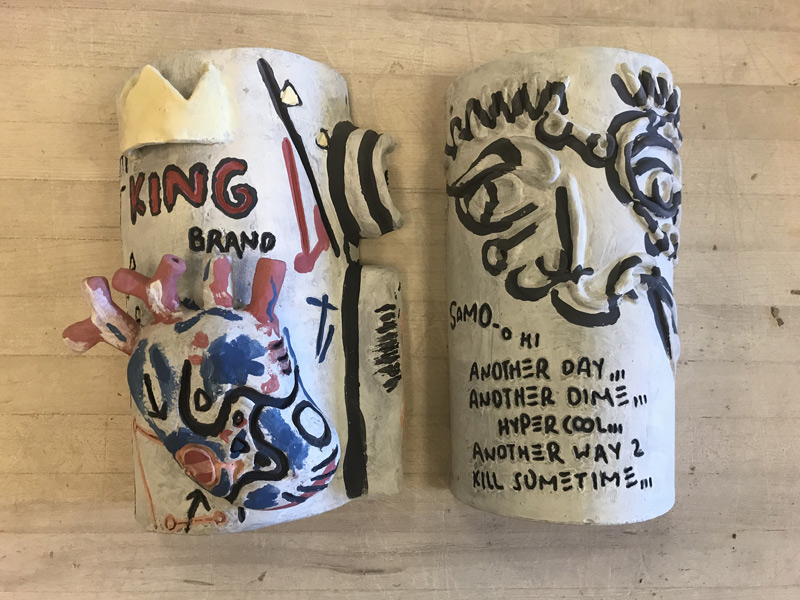 KING
BRAND
SAMO-
HI
ANOTHER DAY,,,
ANOTHER DIME,,,
HYPERCOOL,,,
ANOTHER WAY 2
KILL SUMETIME,,,